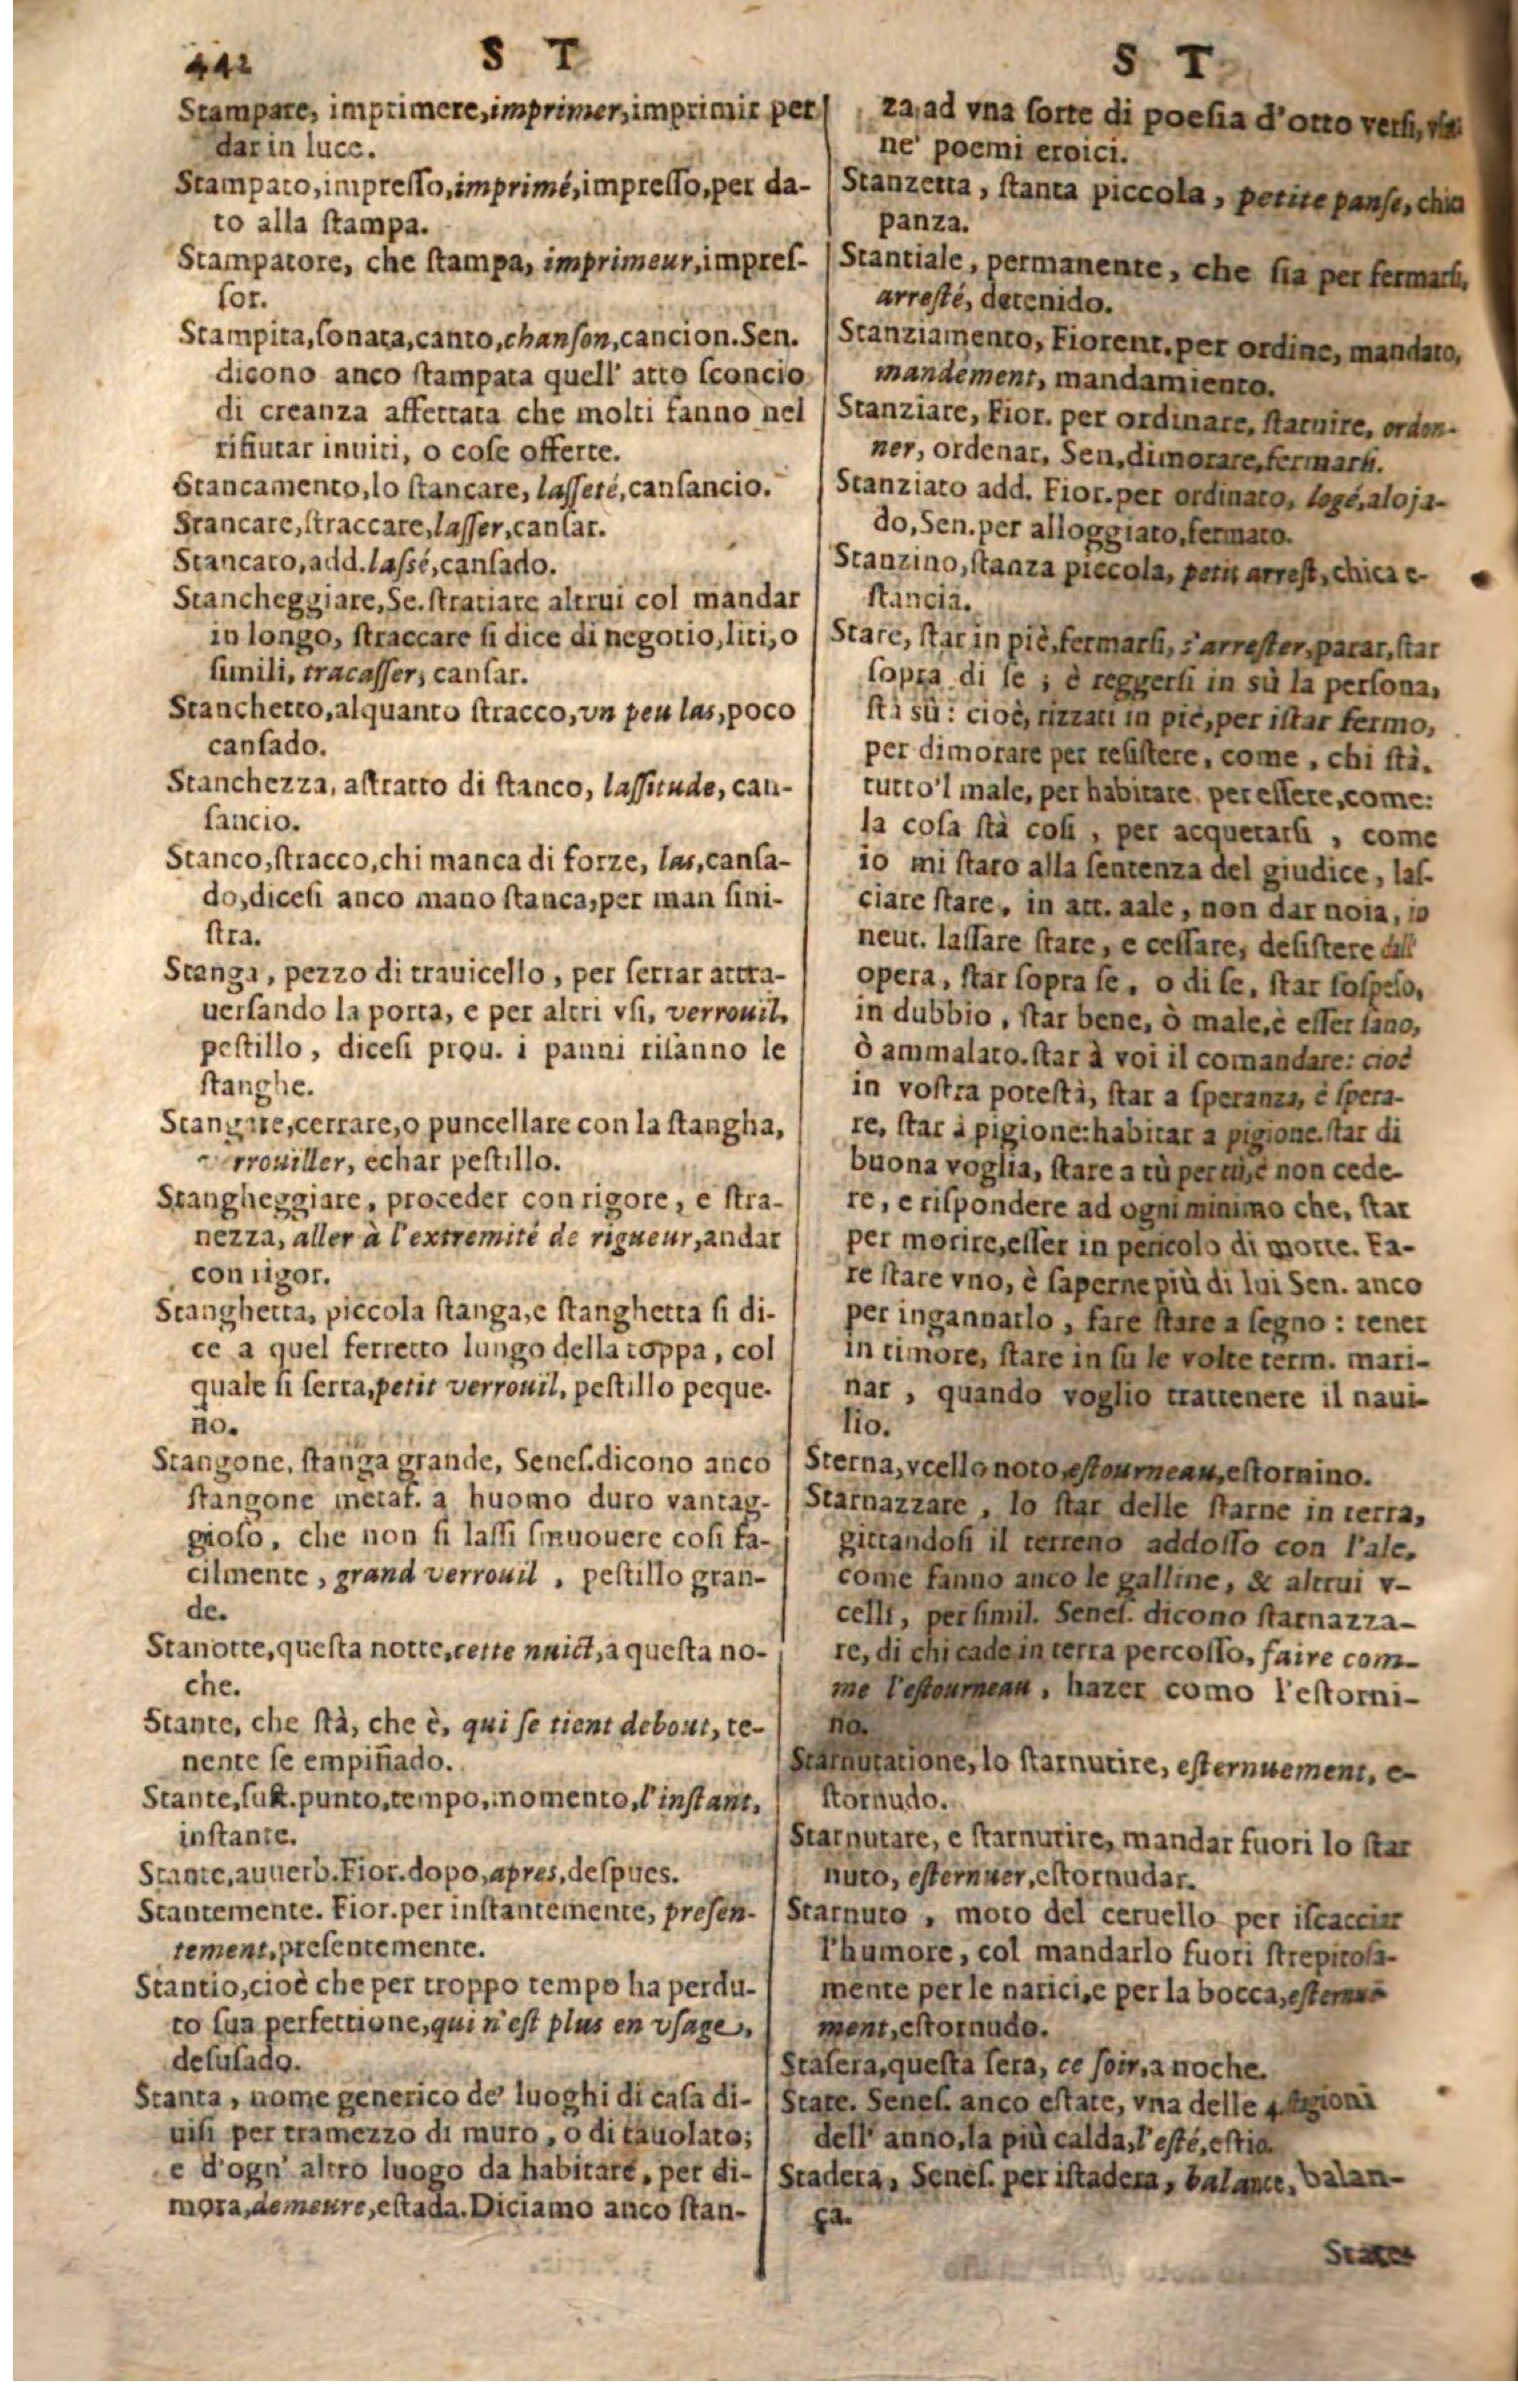 442
S T
Stampare, imprimere, imprimer, imprimir per
dar in luce.
Stampato, impreſſo, imprimé, impreſſo, per da-
to alla ſtampa.
Stampatore, che ſtampa, imprimeur, impreſ-
ſor.
Stampita, ſonata, canto, chanſon, cancion. Sen.
dicono anco ſtampata quell' atto ſconcio
di creanza affettata che molti fanno nel
rifiutar inuiti, o coſe offerte.
Stancamento, lo ſtancare, laſſeté, canſancio.
Stancare, ſtraccare, laſſer, canſar.
Stancato, add. laſsé, canſado.
Stancheggiare, Se. ſtratiare altrui col mandar
in longo, ſtraccare ſi dice di negotio, liti, o
ſimili, tracaſſer, canſar.
Stanchetto, alquanto ſtracco, vn peu las, poco
canſado.
Stanchezza, aſtratto di ſtanco, laſſitude, can-
ſancio.
Stanco, ſtracco, chi manca di forze, las, canſa-
do, diceſi anco mano ſtanca, per man ſini-
ſtra.
Stanga, pezzo di trauicello, per ſerrar attra-
uerſando la porta, e per altri vſi, verrouil,
peſtillo, diceſi prou. i panni riſanno le
ſtanghe.
Stangare, cerrare, o puncellare con la ſtangha,
rrouiller, echar peſtillo.
Stangheggiare, proceder con rigore, e ſtra-
nezza, aller à l'extremité de rigueur, andar
con rigor.
Stanghetta, piccola ſtanga, e ſtanghetta ſi di-
ce a quel ferretto lungo della toppa, col
quale ſi ſerra, petit verrouil, peſtillo peque-
ño.
Stangone, ſtanga grande, Seneſ. dicono anco
ſtangone metaf. a huomo duro vantag-
gioſo, che non ſi laſſi ſmuouere coſi fa-
cilmente, grand verrouil, peſtillo gran-
de.
Stanotte, queſta notte, cette nuict, a queſta no-
che.
Stante, che ſtà, che è, qui ſe tient debout, te-
nente ſe empiñado.
Stante, ſuſt. punto, tempo, momento, l'inſtant,
inſtante.
Stante, auuerb. Fior. dopo, apres, deſpues.
Stantemente. Fior. per inſtantemente, preſen-
tement, preſentemente.
Stantio, cioè che per troppo tempo ha perdu-
to ſua perfettione, qui n'eſt plus en vſage,
deſuſado.
Stanta, nome generico de' luoghi di caſa di-
uiſi per tramezzo di muro, o di tauolato;
e d'ogn' altro luogo da habitare, per di-
mora, demeure, eſtada. Diciamo anco ſtan-
S T
za, ad vna ſorte di poeſia d'otto verſi,
ne' poemi eroici.
Stanzetta, ſtanta piccola, petite panſe, chica
panza.
Stantiale, permanente, che ſia per fermarſi,
arreſté, detenido.
Stanziamento, Fiorent. per ordine, mandato,
mandement, mandamiento.
Stanziare, Fior. per ordinare, ſtatuire, ordon-
ner, ordenar, Sen, dimorare, fermarſi.
Stanziato add. Fior. per ordinato, logé, aloja-
do, Sen. per alloggiato, fermato.
Stanzino, ſtanza piccola, petit arreſt, chica e-
ſtancia.
Stare, ſtar in piè, fermarſi, s'arreſter, parar, ſtar
ſopra di ſe; è reggerſi in sù la perſona,
ſtà sù: cioè, rizzati in piè, per iſtar fermo,
per dimorare per reſiſtere, come, chi ſtà.
tutto'l male, per habitare per eſſere, come:
la coſa ſtà coſi, per acquetarſi, come
io mi ſtaro alla ſentenza del giudice, laſ-
ciare ſtare, in att. aale, non dar noia, in
neut. laſſare ſtare, e ceſſare, deſiſtere dall
opera, ſtar ſopra ſe, o di ſe, ſtar ſoſpeſo,
in dubbio, ſtar bene, ò male, è eſſer ſano,
ò ammalato. ſtar à voi il comandare: cioè
in voſtra poteſtà, ſtar a ſperanza, è ſpera-
re, ſtar à pigione: habitar a pigione. ſtar di
buona voglia, ſtare a tù per tù, è non cede-
re, e riſpondere ad ogni minimo che, ſtar
per morire, eſſer in pericolo di morte. Fa-
re ſtare vno, è ſaperne più di lui Sen. anco
per ingannarlo, fare ſtare a ſegno: tener
in timore, ſtare in ſu le volte term. mari-
nar, quando voglio trattenere il naui-
lio.
Sterna, vcello noto, eſtourneau, eſtornino.
Starnazzare, lo ſtar delle ſtarne in terra,
gittandoſi il terreno addoſſo con l'ale,
come fanno anco le galline, & altrui v-
celli, per ſimil. Seneſ. dicono ſtarnazza-
re, di chi cade in terra percoſſo, faire com-
me l'eſtourneau, hazer como l'eſtorni-
no.
Starnutatione, lo ſtarnutire, eſternuement, e-
ſtornudo.
Starnutare, e ſtarnutire, mandar fuori lo ſtar
nuto, eſternuer, eſtornudar.
Starnuto, moto del ceruello per iſcacciar
l'humore, col mandarlo fuori ſtrepitoſa-
mente per le narici, e per la bocca, eſternue
ment, eſtornudo.
Staſera, queſta ſera, ce ſoir, a noche.
State. Seneſ. anco eſtate, vna delle 4. ſtagioni
dell' anno, la più calda, l'eſté, eſtio.
Stadera, Seneſ. per iſtadera, balance, balan-
ça.